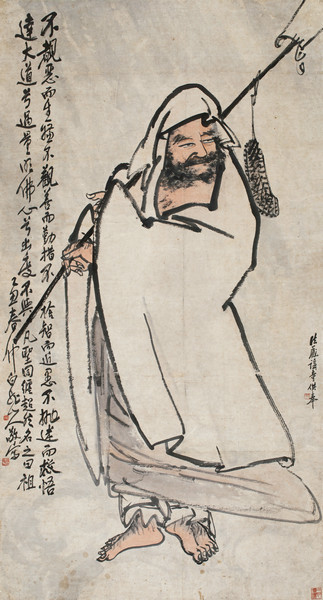 不觀惡而生嫌不觀善而勤措不捨智而近愚不抛迷而救悟
達大道兮過量頂佛心兮出度不與凡聖同纏超然名之曰祖
白龍山人敬寫
供奉